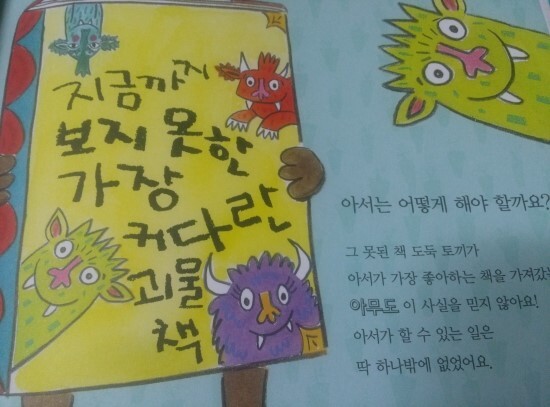 지금까지
보지 못한
가장
커다란
괴물
책
아서는 어떻게 해야 할까요?
그 못된 책 도둑 토끼가
아서가 가장 좋아하는 책을 가져갔는
아무도 이 사실을 믿지 않아요!
아서가 할 수 있는 일은
딱 하나밖에 없었어요.